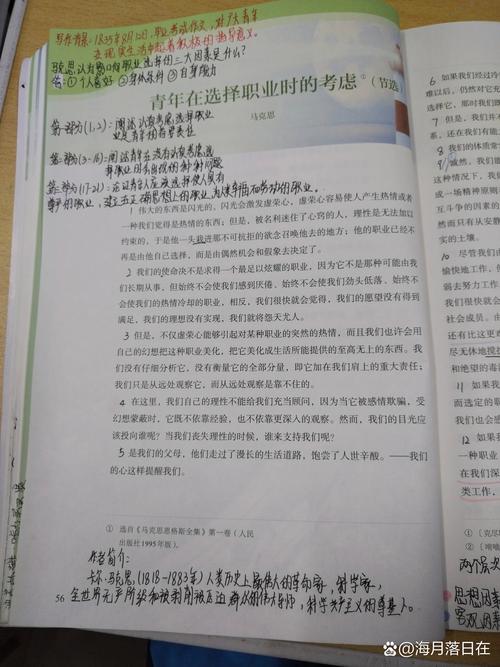 写作背景：1835年8月12日，职业考试作文，对广大青年
在现实生活中起着积极的指导意义。
马克思认为影响职业选择的三大因素是什么？
答：①个人喜好 ②身体条件 ③自身能力
青年在选择职业时的考虑①（节选）
马克思
第一部分(1,2)：阐述认真考虑选择职业
业是青年的首要责任
第二部分
尊严的职业，建立正确思想上的职业
1 伟大的东西是闪光的，闪光会激发虚荣心，虚荣心容易使人产生热情或者
一种我们觉得是热情的东西；但是，被名利迷住了心窍的人，理性是无法加以
约束的，于是他一头栽进那不可抗拒的欲念召唤他去的地方；他的职业已经不
再是由他自己选择，而是由偶然机会和假象去决定了。
2 我们的使命决不是求得一个最足以炫耀的职业，因为它不是那种可能由我
们长期从事，但始终不会使我们感到厌倦、始终不会使我们劲头低落、始终不
会使我们的热情冷却的职业，相反，我们很快就会觉得，我们的愿望没有得到
满足，我们的理想没有实现，我们就将怨天尤人。
3 但是，不仅虚荣心能够引起对某种职业的突然的热情，而且我们也许会用
自己的幻想把这种职业美化，把它美化成生活所能提供的至高无上的东西。我
们没有仔细分析它，没有衡量它的全部分量，即它加在我们肩上的重大责任；
我们只是从远处观察它，而从远处观察是靠不住的。
4 在这里，我们自己的理性不能给我们充当顾问，因为当它被感情欺骗，受
幻想蒙蔽时，它既不依靠经验，也不依靠更深入的观察。然而，我们的目光应
该投向谁呢？当我们丧失理性的时候，谁来支持我们呢？
5 是我们的父母，他们走过了漫长的生活道路，饱尝了人世辛酸。——我们
的心这样提醒我们。
① 选自《马克思恩格斯全集》第一卷（人民
出版社1995年版）。
作者简介：
卡尔·马克思，(1818-1883年)人类历史上最伟大的革命家，科学家，
全世界无产阶级和被剥削被压迫群众的伟大导师，科学共产主义的奠基人。
56
6 如果我们经过冷
难以后，仍然对它充
选择它，那时我们既
7 但是，我们并
还在我们有能
8 我们的体质常
9 诚然，我们能
这种情况下，我们
成一场精神原则
互斗争的因素的
然而只有从安静
实的土壤。
10 尽管我们由
愉快地工作，但
弱去努力工作
我们很快就会
社会成员。由
还有比这更
尽无休地搅
和绝望的毒
11 如果
而选定的
12 如果我
一种职业
在我们深
类工作，
① 〔克尽
② 〔啃啮
两个层次
思想因素
客观因素
@海月落日在